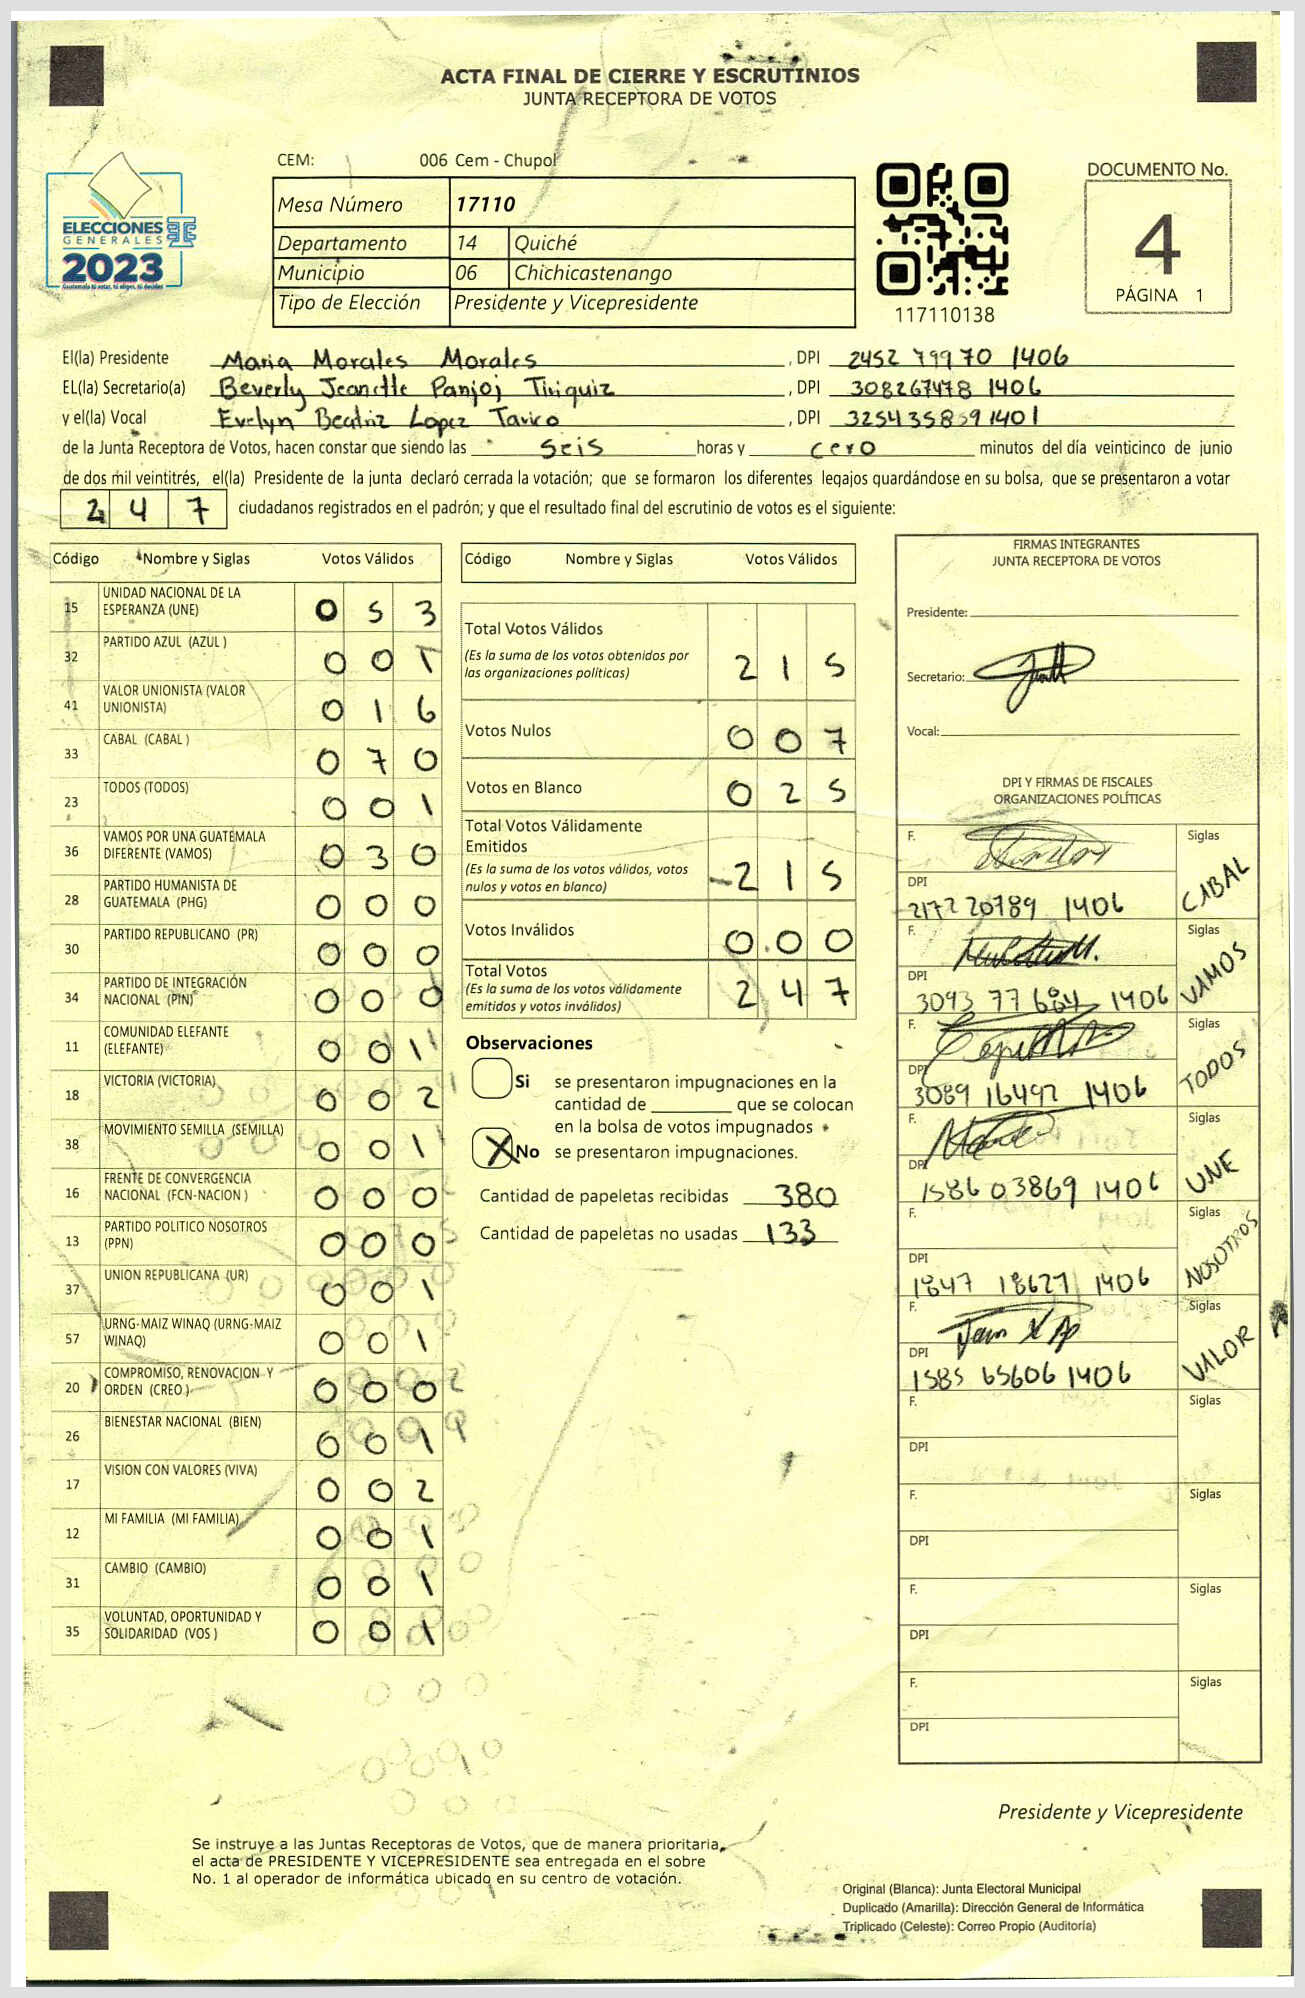 ACTA FINAL DE CIERRE Y ESCRUTINIOS
JUNTA RECEPTORA DE VOTOS
CEM: 006 Cem - Chupol
DOCUMENTO No.
4
PÁGINA 1
ELECCIONES
GENERALES
2023
Guatemala tú votas, tú eliges, tú decides
Mesa Número 17110
Departamento 14 Quiché
Municipio 06 Chichicastenango
Tipo de Elección Presidente y Vicepresidente
117110138
El(la) Presidente Maria Morales Morales , DPI 2452 79970 1406
EL(la) Secretario(a) Beverly Jeanette Panjoj Tiriquiz , DPI 308267478 1406
y el(la) Vocal Evelyn Beatriz Lopez Tavico , DPI 3254358591401
de la Junta Receptora de Votos, hacen constar que siendo las seis horas y cero minutos del día veinticinco de junio
de dos mil veintitrés, el(la) Presidente de la junta declaró cerrada la votación; que se formaron los diferentes legajos quardándose en su bolsa, que se presentaron a votar
247 ciudadanos registrados en el padrón; y que el resultado final del escrutinio de votos es el siguiente:
Código Nombre y Siglas Votos Válidos
15 UNIDAD NACIONAL DE LA ESPERANZA (UNE) 0 5 3
32 PARTIDO AZUL (AZUL ) 0 0 1
41 VALOR UNIONISTA (VALOR UNIONISTA) 0 1 6
33 CABAL (CABAL ) 0 7 0
23 TODOS (TODOS) 0 0 1
36 VAMOS POR UNA GUATEMALA DIFERENTE (VAMOS) 0 3 0
28 PARTIDO HUMANISTA DE GUATEMALA (PHG) 0 0 0
30 PARTIDO REPUBLICANO (PR) 0 0 0
34 PARTIDO DE INTEGRACIÓN NACIONAL (PIN) 0 0 0
11 COMUNIDAD ELEFANTE (ELEFANTE) 0 0 1
18 VICTORIA (VICTORIA) 0 0 2
38 MOVIMIENTO SEMILLA (SEMILLA) 0 0 1
16 FRENTE DE CONVERGENCIA NACIONAL (FCN-NACION ) 0 0 0
13 PARTIDO POLITICO NOSOTROS (PPN) 0 0 0
37 UNION REPUBLICANA (UR) 0 0 1
57 URNG-MAIZ WINAQ (URNG-MAIZ WINAQ) 0 0 1
20 COMPROMISO, RENOVACION Y ORDEN (CREO ) 0 0 0
26 BIENESTAR NACIONAL (BIEN) 0 0 1
17 VISION CON VALORES (VIVA) 0 0 2
12 MI FAMILIA (MI FAMILIA) 0 0 1
31 CAMBIO (CAMBIO) 0 0 1
35 VOLUNTAD, OPORTUNIDAD Y SOLIDARIDAD (VOS ) 0 0 1
Código Nombre y Siglas Votos Válidos
Total Votos Válidos
(Es la suma de los votos obtenidos por las organizaciones políticas) 2 1 5
Votos Nulos 0 0 7
Votos en Blanco 0 2 5
Total Votos Válidamente Emitidos
(Es la suma de los votos válidos, votos nulos y votos en blanco) 2 1 5
Votos Inválidos 0 0 0
Total Votos
(Es la suma de los votos válidamente emitidos y votos inválidos) 2 4 7
Observaciones
Si se presentaron impugnaciones en la
cantidad de ________ que se colocan
en la bolsa de votos impugnados
X No se presentaron impugnaciones.
Cantidad de papeletas recibidas 380
Cantidad de papeletas no usadas 133
FIRMAS INTEGRANTES
JUNTA RECEPTORA DE VOTOS
Presidente:
Secretario:
Vocal:
DPI Y FIRMAS DE FISCALES
ORGANIZACIONES POLÍTICAS
F. Siglas CABAL
DPI 2172 20789 1406
F. Siglas VAMOS
DPI 3093 77 664 1406
F. Siglas TODOS
DPI 3089 16492 1406
F. Siglas UNE
DPI 1586 03869 1406
F. Siglas NOSOTROS
DPI 1847 18627 1406
F. Siglas VALOR
DPI 1585 65606 1406
F. Siglas
DPI
F. Siglas
DPI
F. Siglas
DPI
F. Siglas
DPI
Presidente y Vicepresidente
Se instruye a las Juntas Receptoras de Votos, que de manera prioritaria,
el acta de PRESIDENTE Y VICEPRESIDENTE sea entregada en el sobre
No. 1 al operador de informática ubicado en su centro de votación.
Original (Blanca): Junta Electoral Municipal
Duplicado (Amarilla): Dirección General de Informática
Triplicado (Celeste): Correo Propio (Auditoría)